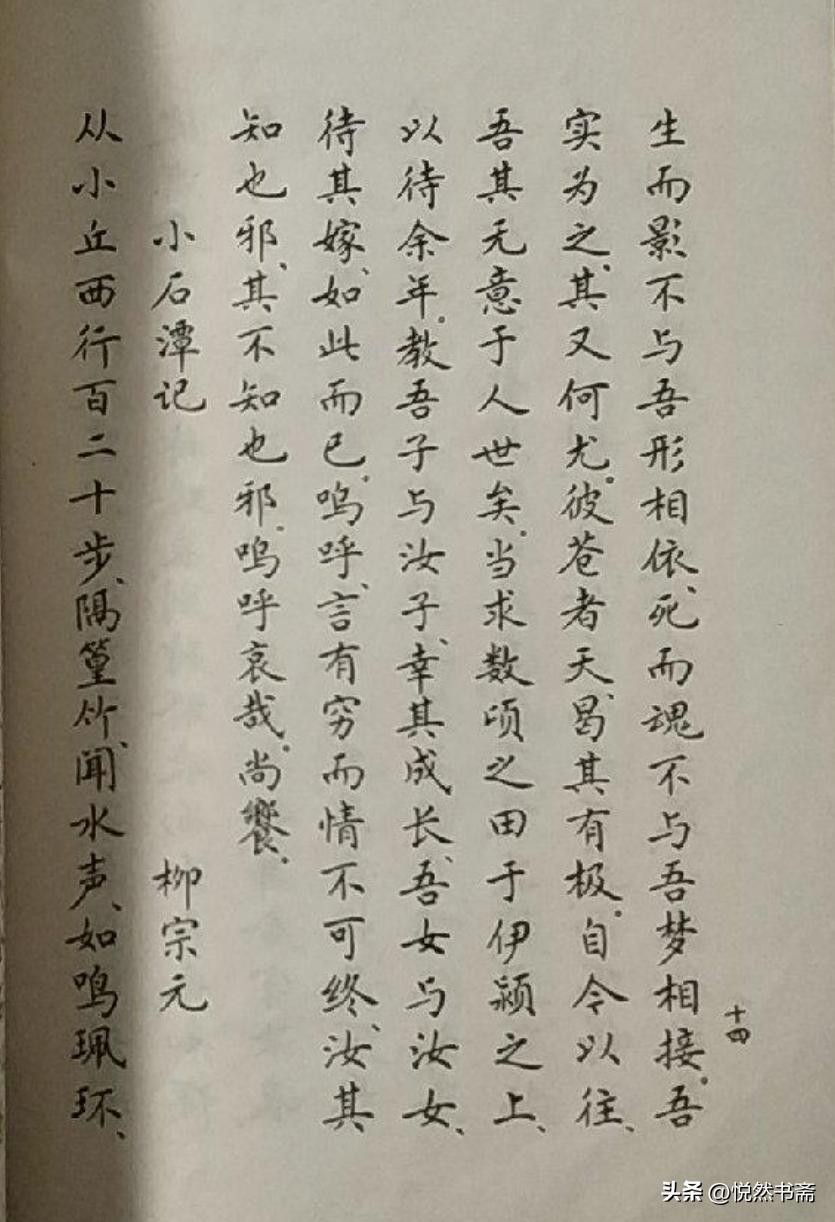 生而影不与吾形相依、死而魂不与吾梦相接。吾
实为之、其又何尤。彼苍者天、曷其有极。自今以往、
吾其无意于人世矣。当求数顷之田于伊颍之上、
以待余年。教吾子与汝子、幸其成长、吾女与汝女、
待其嫁、如此而已。呜呼、言有穷而情不可终、汝其
知也邪、其不知也邪。呜呼哀哉。尚飨。
小石潭记 柳宗元
从小丘西行百二十步、隔篁竹、闻水声、如鸣珮环、
十四
头条 @悦然书斋